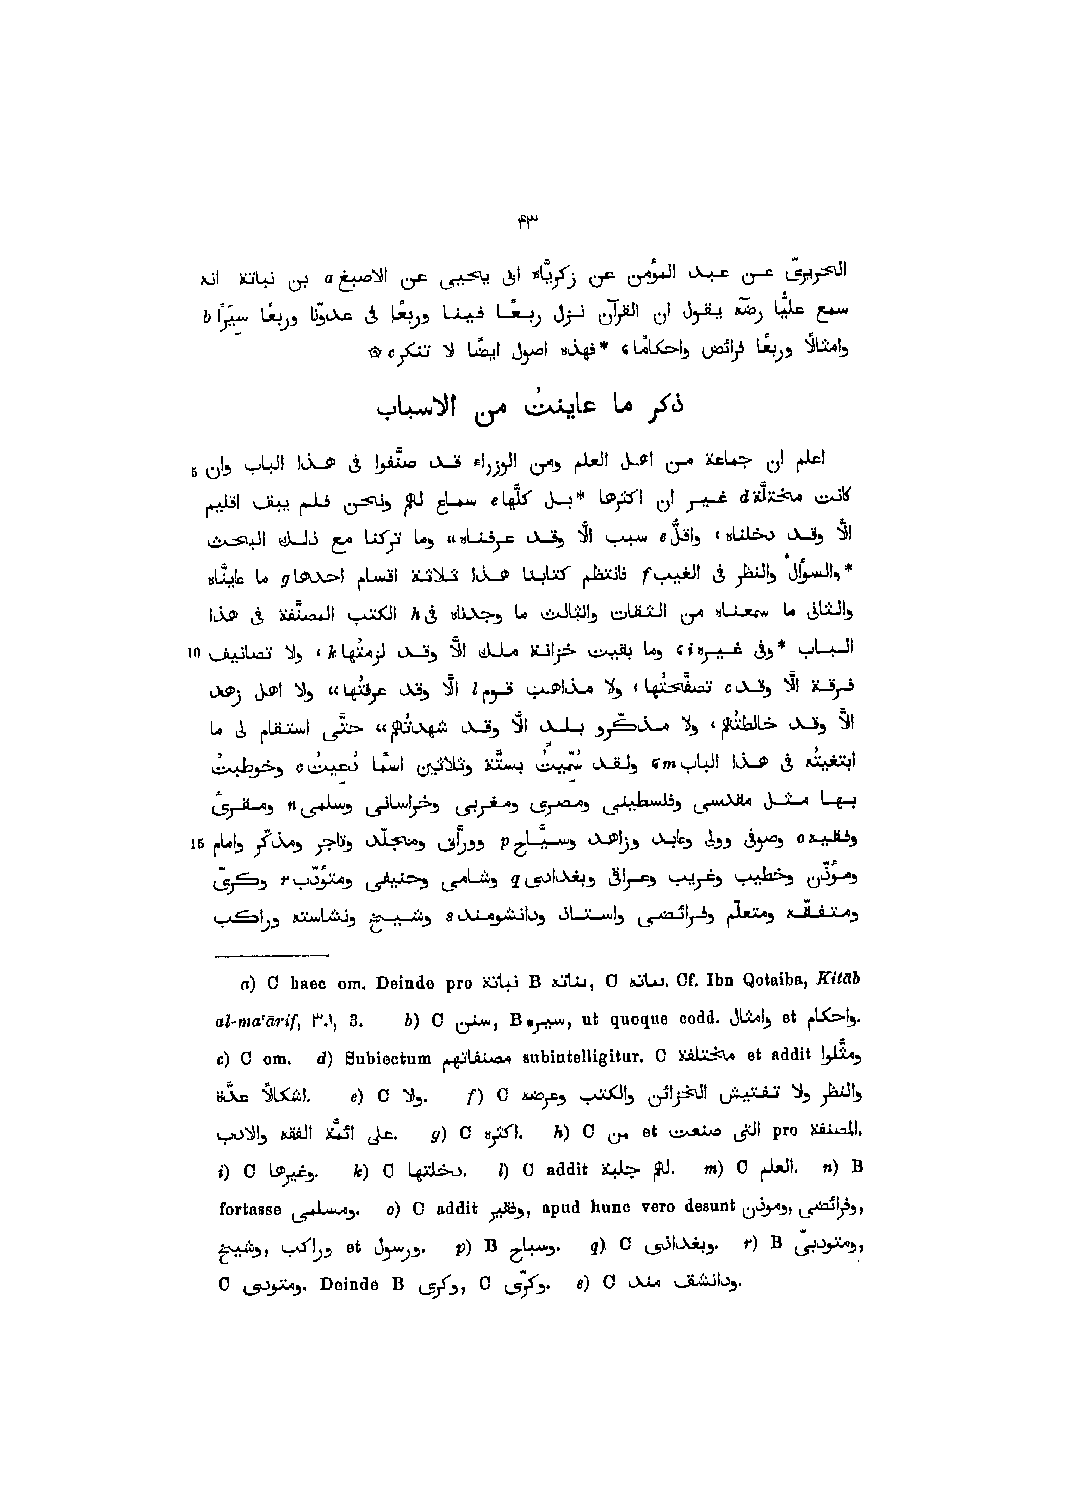 ۴۳
الحريرىّ عن عبد المؤمن عن زكريّاء ابى يحيى عن الاصبغ a بن نباتة انه
سمع عليًّا رضّه يقول ان القرآن نزل ربعًا فينا وربعًا فى عدوّنا وربعًا سِيَرًا b
وامثالًا وربعًا فرائض واحكامًا، *فهذه اصول ايضًا لا تنكر c ۞
ذكر ما عاينتُ من الاسباب
اعلم ان جماعة من اهل العلم ومن الوزراء قد صنَّفوا فى هذا الباب وان 5
كانت مختلَّة d غير ان اكثرها *بل كلَّها e سماع لهم ونحن فلم يبقَ اقليم
الّا وقد دخلناه، واقلّ e سبب الّا وقد عرفناه، وما تركنا مع ذلك البحث
*والسؤال والنظر فى الغيب f فانتظم كتابنا هذا ثلاثة اقسام احدها g ما عاينّاه
والثانى ما سمعناه من الثقات والثالث ما وجدناه فى h الكتب المصنَّفة فى هذا
الباب *وفى غيره i، وما بقيت خزانة ملك الّا وقد لزمتُها k، ولا تصانيف 10
فرقة الّا وقد c تصفّحتُها، ولا مذاهب قوم l الّا وقد عرفتُها، ولا اهل زهد
الّا وقد خالطتُهم، ولا مذكّرو بلد الّا وقد شهدتُهم، حتَّى استقام لى ما
ابتغيتُه فى هذا الباب m، ولقد سُمِّيتُ بستَّة وثلاثين اسمًا دُعيتُ c وخوطبتُ
بها مثل مقدسى وفلسطينى ومصرى ومغربى وخراسانى وسلمى n ومقرئ
وفقيه o وصوفى وولى وعابد وزاهد وسيّاح p وورّاق ومجلّد وتاجر ومذكّر وامام 15
ومؤذّن وخطيب وغريب وعراقى وبغدادى q وشامى وحنيفى ومتؤدّب r وكرىّ
ومتفقّه ومتعلّم وفرائضى واستاذ ودانشومند s وشيخ ونشاسته وراكب
a) C haec om. Deinde pro نباتة B بناتة, C ساتة. Cf. Ibn Qotaiba, Kitâb
al-ma'ârif, ٣٠١, 3. b) C سنن, B سيره, ut quoque codd. وامثال et واحكام.
c) C om. d) Subiectum مصنفاتهم subintelligitur. C مختلفة et addit ومثَّلوا
اشكالًا عدّة. e) C ولا. f) C والنظر ولا تفتيش الخزائن والكتب وعرضه
على ائمَّة الفقه والادب. g) C اكثره. h) C من et التى صنعت pro المصنفة.
i) C وغيرها. k) C دخلتها. l) C addit لهم جلبة. m) C العلم. n) B
fortasse ومسلمى. o) C addit وفقير, apud hunc vero desunt وموذن, وفرائضى,
وشيخ, وراكب et ورسول. p) B وسباح. q) C وبغدانى. r) B ومتودبىّ,
C ومتودى. Deinde B وكرى, C وكرّى. s) C ودانشف مند.